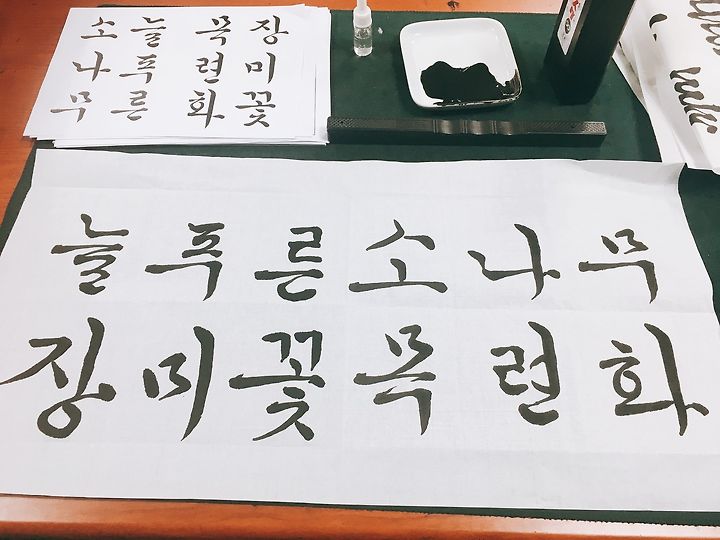 장미꽃
목련화
늘푸른
소나무
늘푸른소나무
장미꽃목련화